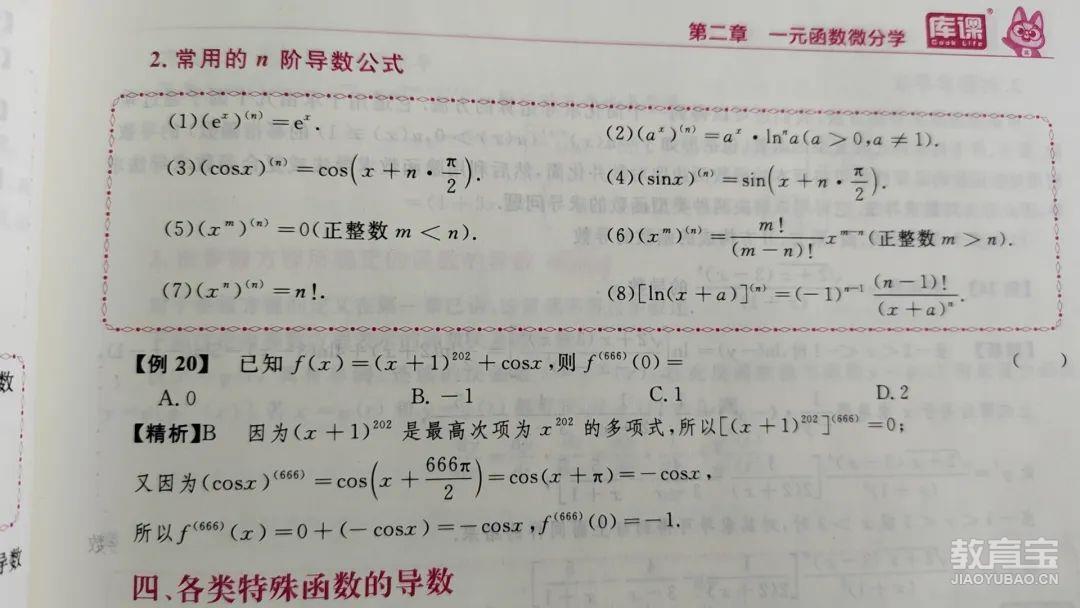 第二章 一元函数微分学
库课
Cook Life
2.常用的 n 阶导数公式
(1)(eˣ)⁽ⁿ⁾=eˣ.
(2)(aˣ)⁽ⁿ⁾=aˣ·lnⁿa(a>0,a≠1).
(3)(cosx)⁽ⁿ⁾=cos(x+n·π/2).
(4)(sinx)⁽ⁿ⁾=sin(x+n·π/2).
(5)(xᵐ)⁽ⁿ⁾=0(正整数 m<n).
(6)(xᵐ)⁽ⁿ⁾=m!/(m-n)! xᵐ⁻ⁿ(正整数 m>n).
(7)(xⁿ)⁽ⁿ⁾=n!.
(8)[ln(x+a)]⁽ⁿ⁾=(-1)ⁿ⁻¹ (n-1)!/(x+a)ⁿ.
【例 20】 已知 f(x)=(x+1)²⁰²+cosx,则 f⁽⁶⁶⁶⁾(0)= ( )
A.0 B.-1 C.1 D.2
【精析】B 因为(x+1)²⁰² 是最高次项为 x²⁰² 的多项式,所以[(x+1)²⁰²]⁽⁶⁶⁶⁾=0;
又因为(cosx)⁽⁶⁶⁶⁾=cos(x+666π/2)=cos(x+π)=-cosx,
所以 f⁽⁶⁶⁶⁾(x)=0+(-cosx)=-cosx,f⁽⁶⁶⁶⁾(0)=-1.
四、各类特殊函数的导数
数
导数
教育宝
JIAOYUBAO.CN